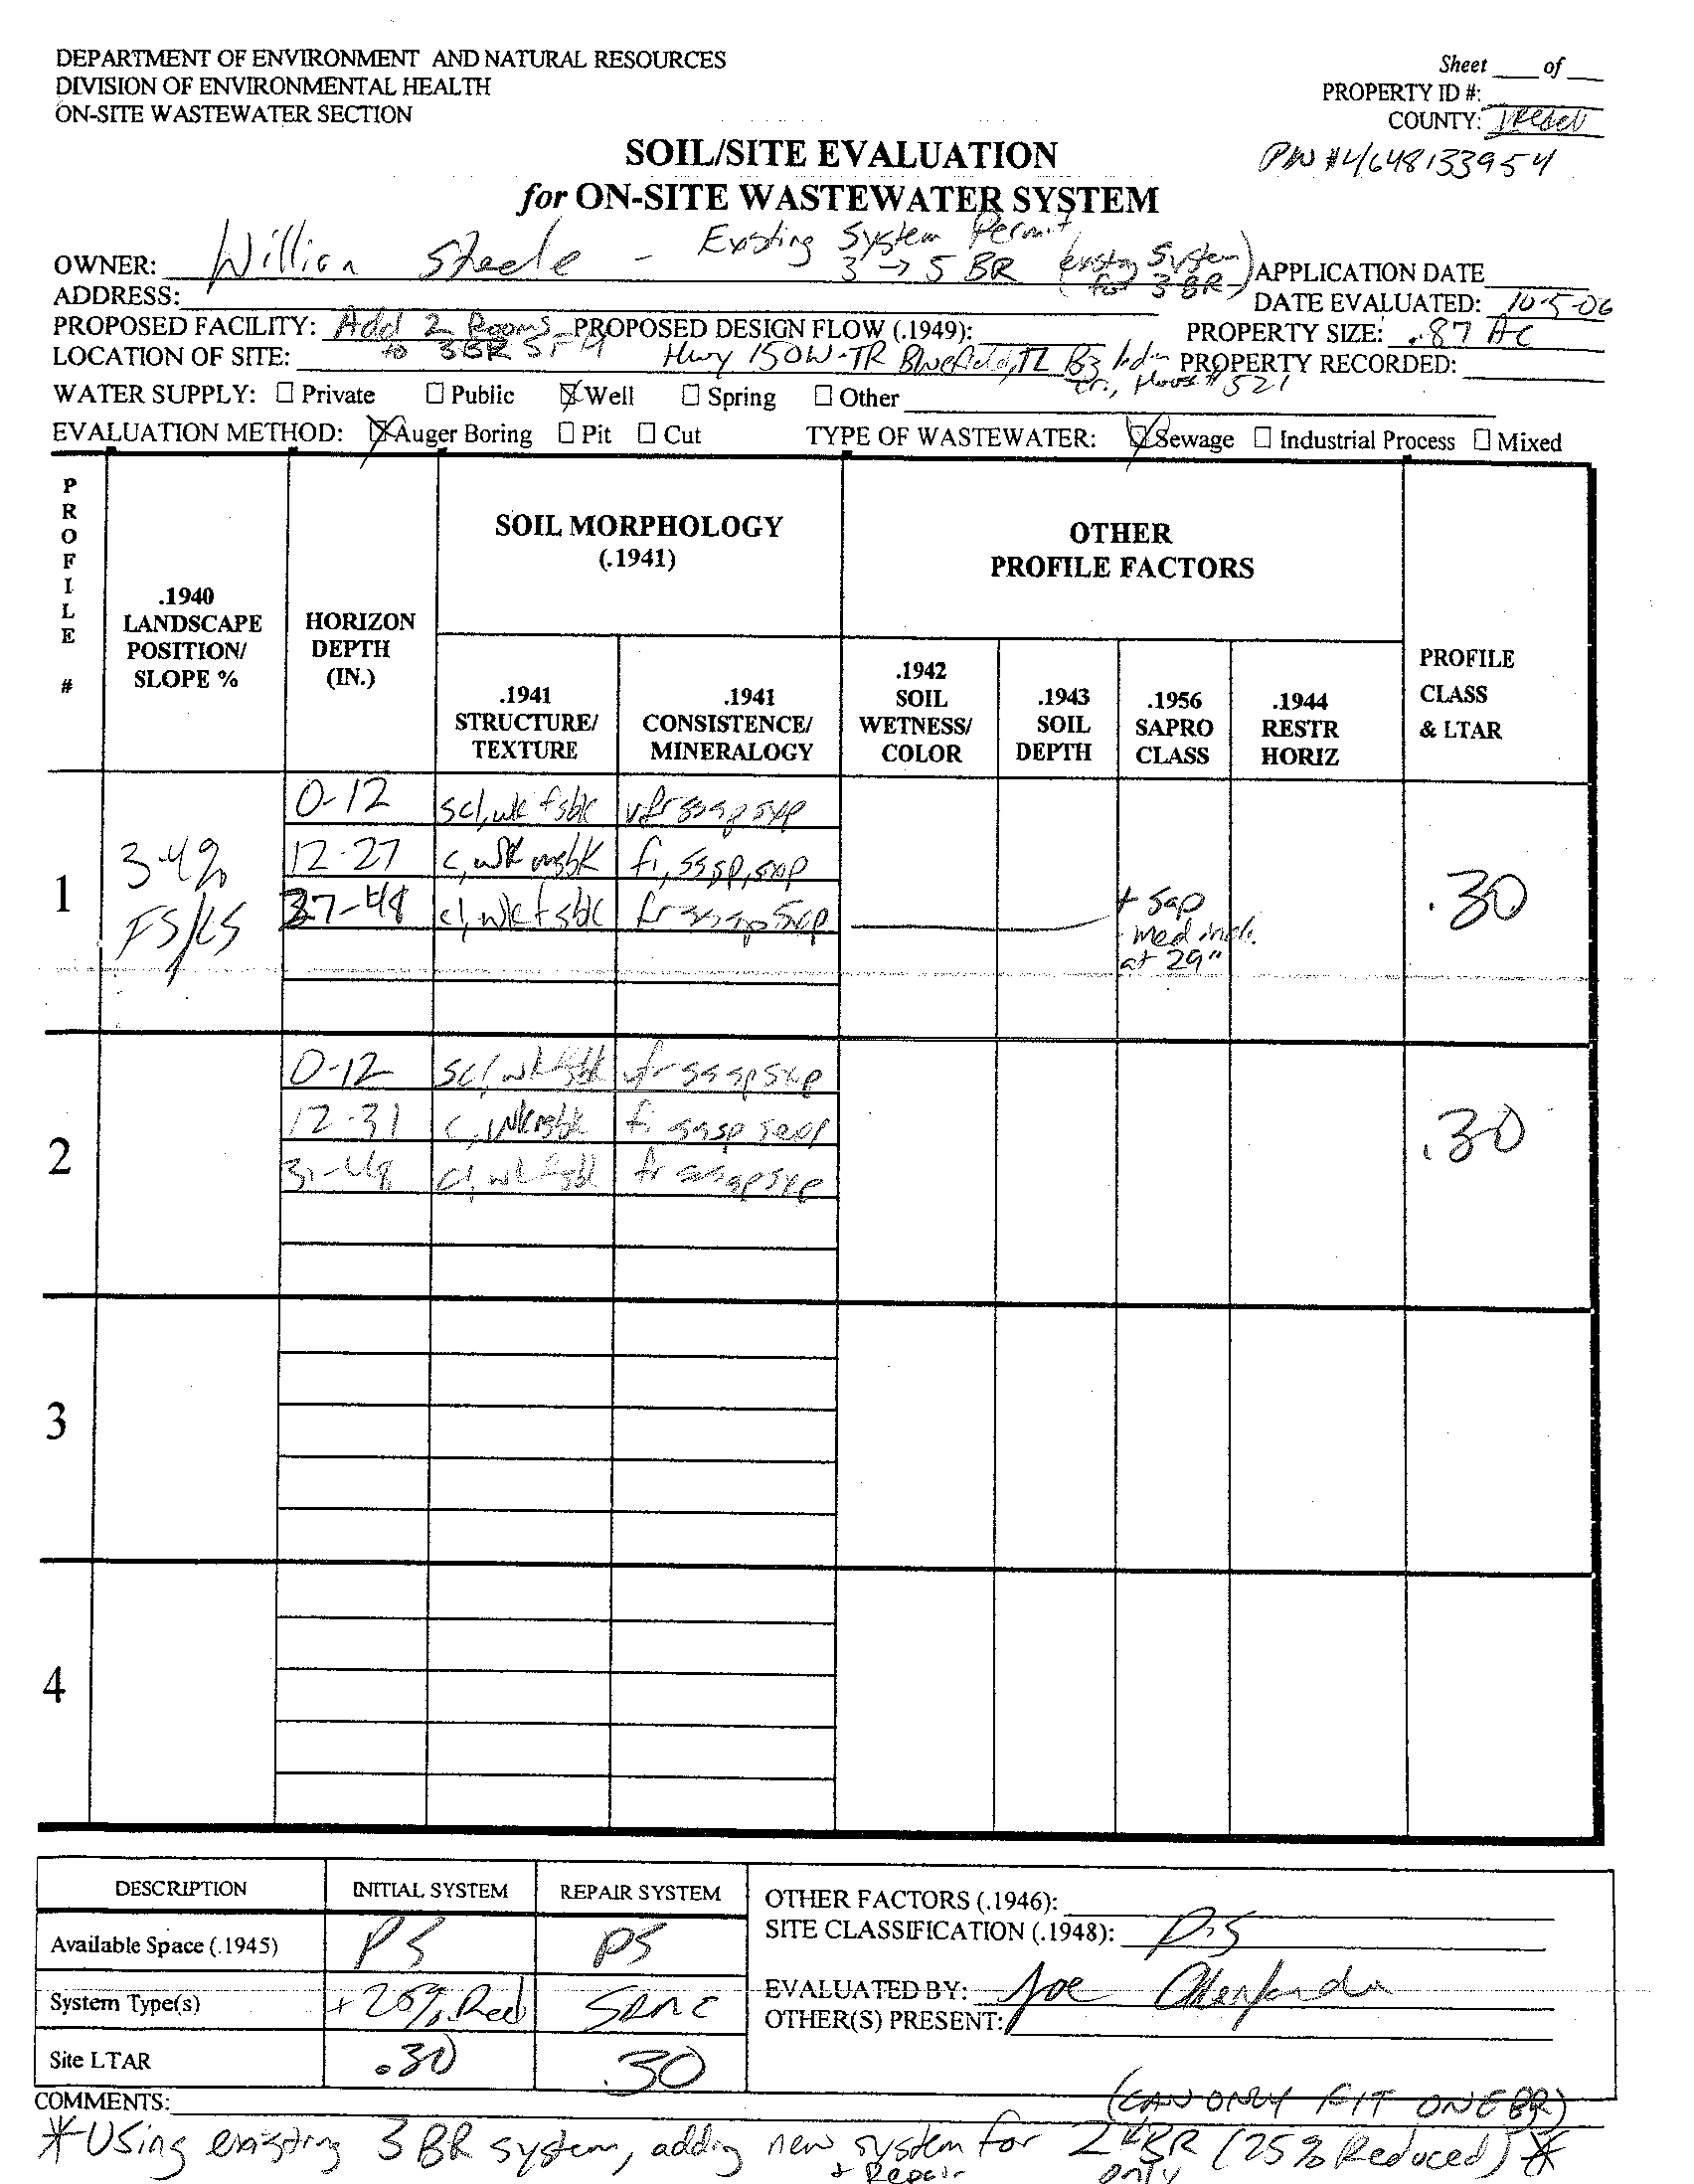 DEPARTMENT OF ENVIRONMENT AND NATURAL RESOURCES
DIVISION OF ENVIRONMENTAL HEALTH
ON-SITE WASTEWATER SECTION
Sheet ____ of ___
PROPERTY ID #:
COUNTY: Iredell
PIN #4648133954
SOIL/SITE EVALUATION
for ON-SITE WASTEWATER SYSTEM
OWNER: William Steele - Existing System Permit
3 → 5 BR (existing System for 3 BR)
APPLICATION DATE
ADDRESS:
DATE EVALUATED: 10-5-06
PROPOSED FACILITY: Add 2 Rooms to 3BR
PROPOSED DESIGN FLOW (.1949):
PROPERTY SIZE: .87 AC
LOCATION OF SITE: Hwy 150W-TR Bluefield, TL
House # 521
PROPERTY RECORDED:
WATER SUPPLY: ☐ Private ☐ Public ☒ Well ☐ Spring ☐ Other
EVALUATION METHOD: ☒ Auger Boring ☐ Pit ☐ Cut TYPE OF WASTEWATER: ☒ Sewage ☐ Industrial Process ☐ Mixed
PROFILE #
.1940 LANDSCAPE POSITION/ SLOPE %
HORIZON DEPTH (IN.)
SOIL MORPHOLOGY
(.1941)
.1941 STRUCTURE/ TEXTURE
.1941 CONSISTENCE/ MINERALOGY
OTHER
PROFILE FACTORS
.1942 SOIL WETNESS/ COLOR
.1943 SOIL DEPTH
.1956 SAPRO CLASS
.1944 RESTR HORIZ
PROFILE CLASS & LTAR
1
3-4%
FS/LS
0-12 scl, wk fsbk vfr ss sp sxp
12-27 c, wk msbk fi, ss sp, sxp
27-48 cl, wk fsbk fr ss sp sxp
+ sap
med incl.
at 29"
.30
2
0-12 scl wk fsbk vfr ss sp sxp
12-31 c, wk msbk fi ss sp sexp
31-48 cl, wk fsbk fr ss sp sxp
.30
3
4
DESCRIPTION INITIAL SYSTEM REPAIR SYSTEM
Available Space (.1945) PS PS
System Type(s) + 25% Red Same
Site LTAR .30 .30
OTHER FACTORS (.1946):
SITE CLASSIFICATION (.1948): P.S
EVALUATED BY: Joe
OTHER(S) PRESENT:
COMMENTS:
(CAN ONLY FIT ONE BR)
* Using existing 3 BR system, adding new system for 2 BR (25% Reduced) *
+ Repair only